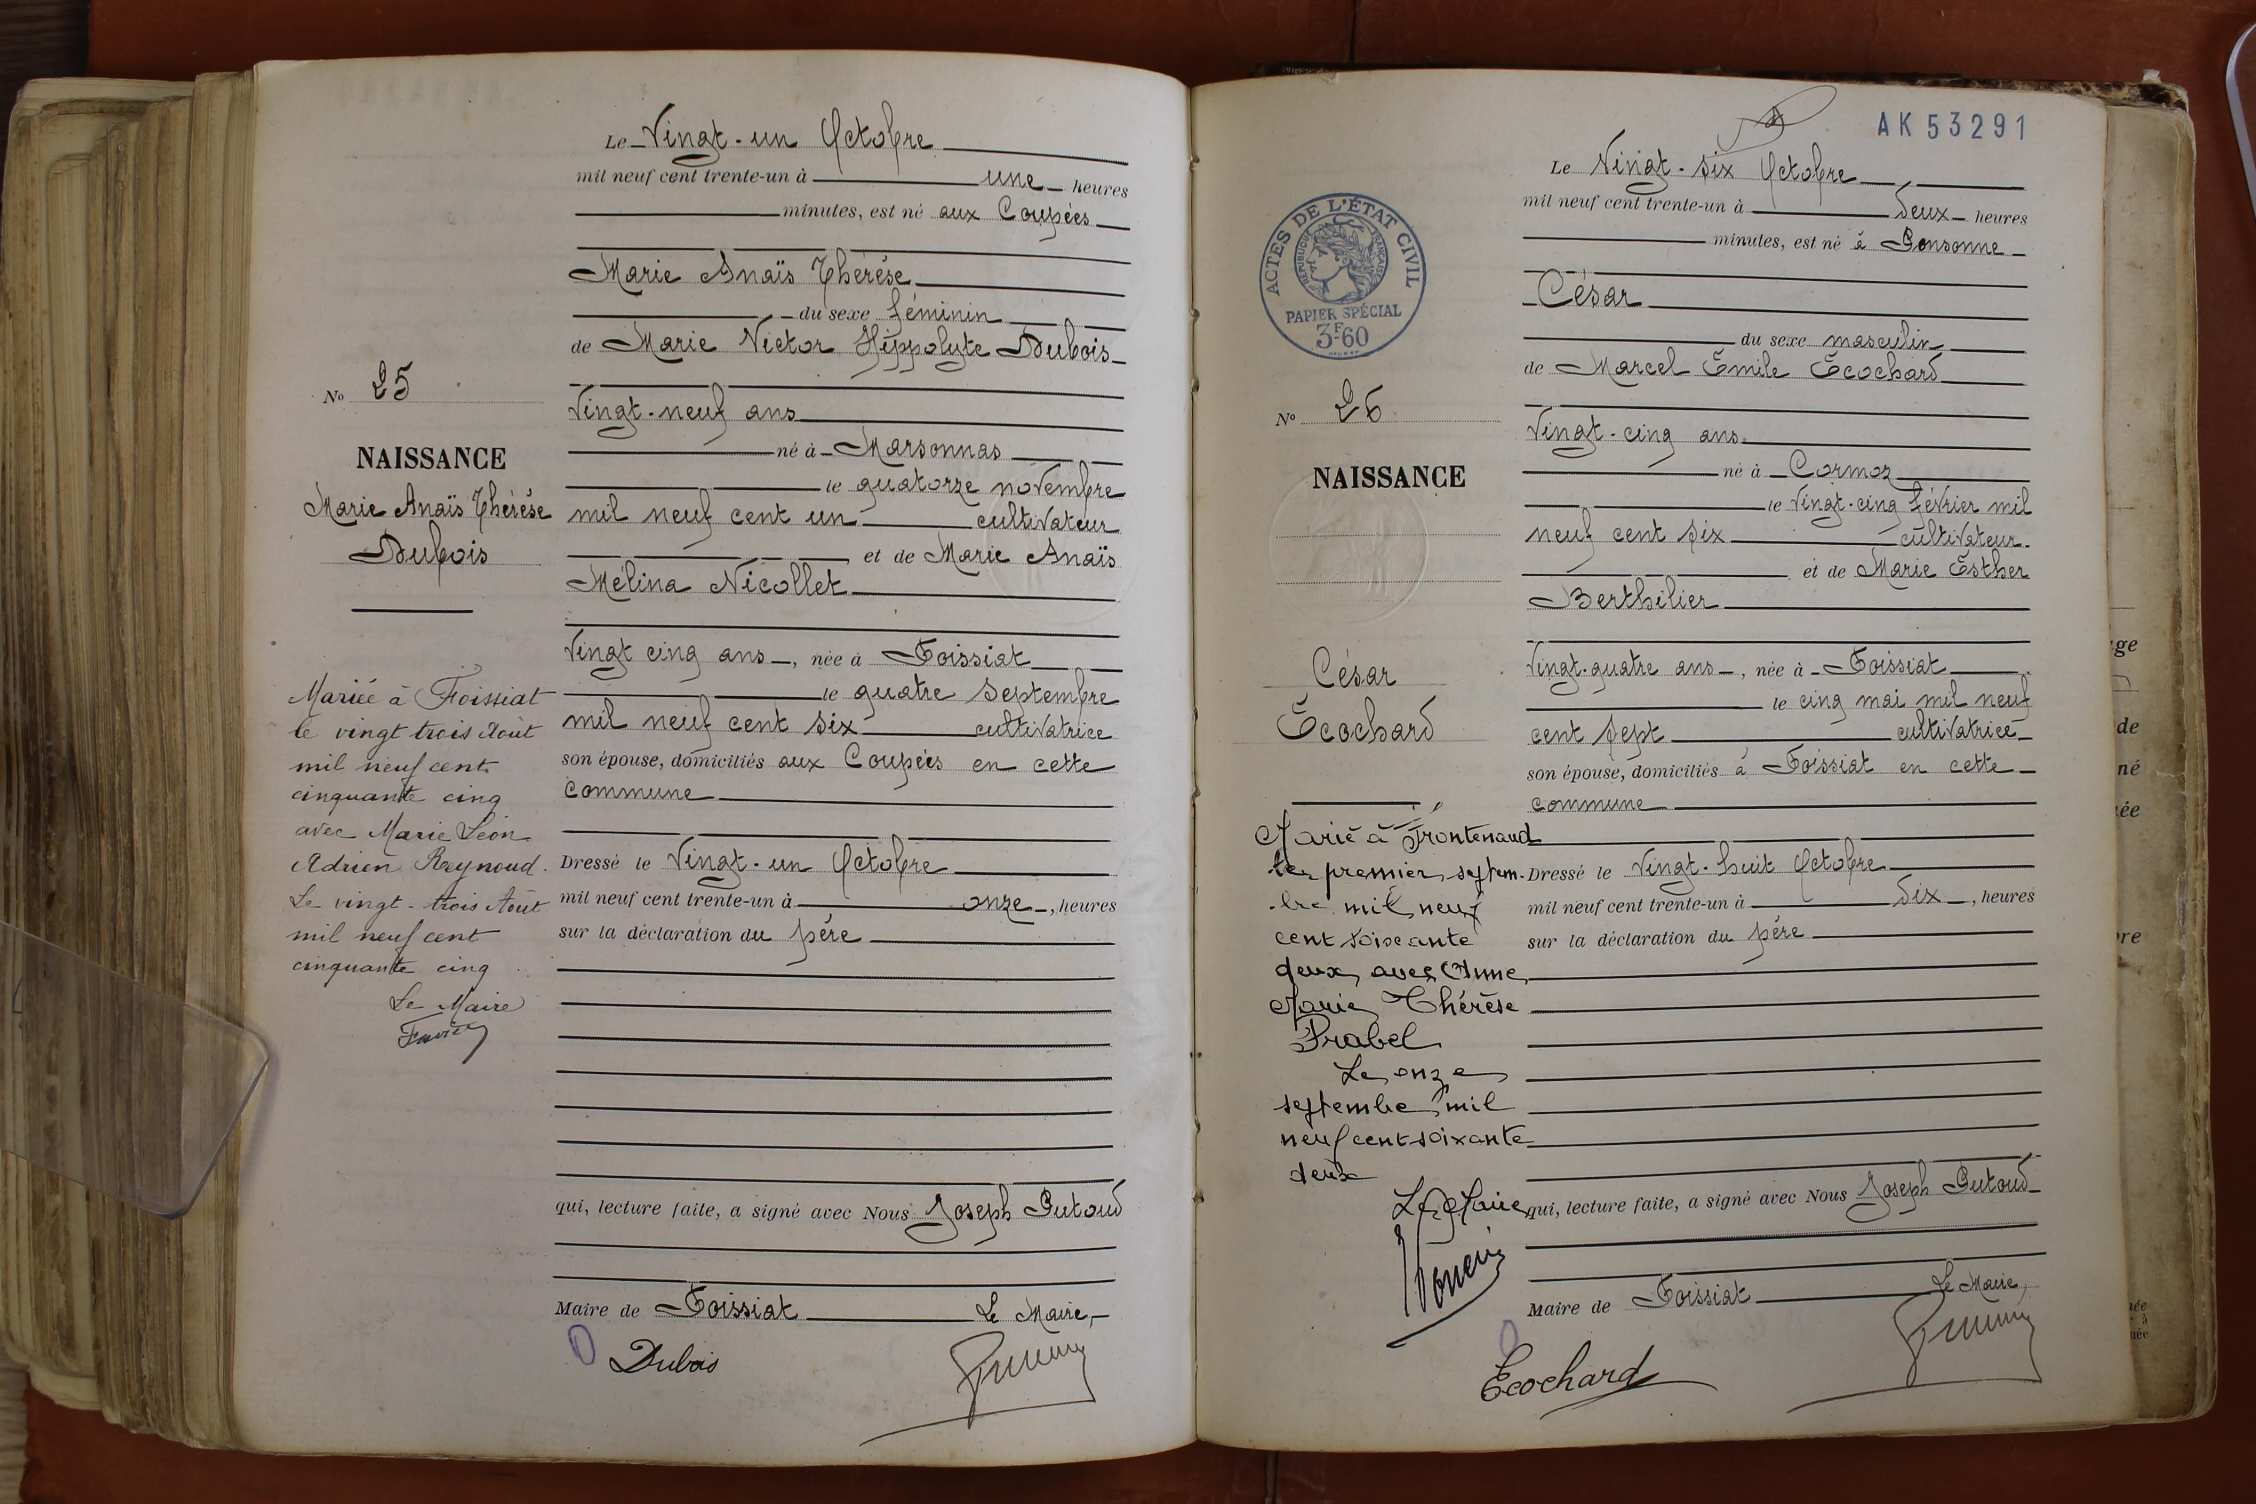 Le Vingt-un Octobre
mil neuf cent trente-un à une heures
minutes, est né aux Coupées
Marie Anaïs Thérèse
du sexe féminin
de Marie Victor Hippolyte Dubois
Vingt-neuf ans
né à Marsonnas
le quatorze novembre
mil neuf cent un cultivateur
et de Marie Anaïs
Mélina Nicollet
Vingt cinq ans, née à Foissiat
le quatre Septembre
mil neuf cent six cultivatrice
son épouse, domiciliés aux Coupées en cette
commune
Dressé le Vingt-un Octobre
mil neuf cent trente-un à onze, heures
sur la déclaration du père
qui, lecture faite, a signé avec Nous Joseph Putoud
Maire de Foissiat Le Maire,
Dubois
No 25
NAISSANCE
Marie Anaïs Thérèse
Dubois
Mariée à Foissiat
le vingt trois Août
mil neuf cent
cinquante cinq
avec Marie Léon
Adrien Reynoud.
Le vingt-trois Août
mil neuf cent
cinquante cinq
Le Maire
AK 53291
Le Vingt-six Octobre
mil neuf cent trente-un à deux heures
minutes, est né à Consonne
César
du sexe masculin
de Marcel Emile Ecochard
Vingt-cinq ans.
né à Cormoz
le Vingt-cinq février mil
neuf cent six cultivateur.
et de Marie Esther
Berthilier
Vingt-quatre ans, née à Foissiat
le cinq mai mil neuf
cent sept cultivatrice
son épouse, domiciliés à Foissiat en cette
commune
Dressé le Vingt-huit Octobre
mil neuf cent trente-un à Six, heures
sur la déclaration du père
qui, lecture faite, a signé avec Nous Joseph Putoud
Maire de Foissiat Le Maire,
Ecochard
ACTES DE L'ÉTAT CIVIL
RÉPUBLIQUE FRANÇAISE
PAPIER SPÉCIAL
3F60
No 26
NAISSANCE
César
Ecochard
Marié à Frontenaud
le premier septem-
bre mil neuf
cent soixante
deux avec Anne
Marie Thérèse
Prabel
Le onze
septembre mil
neuf cent soixante
deux
Le Maire,
ge
de
né
née
re